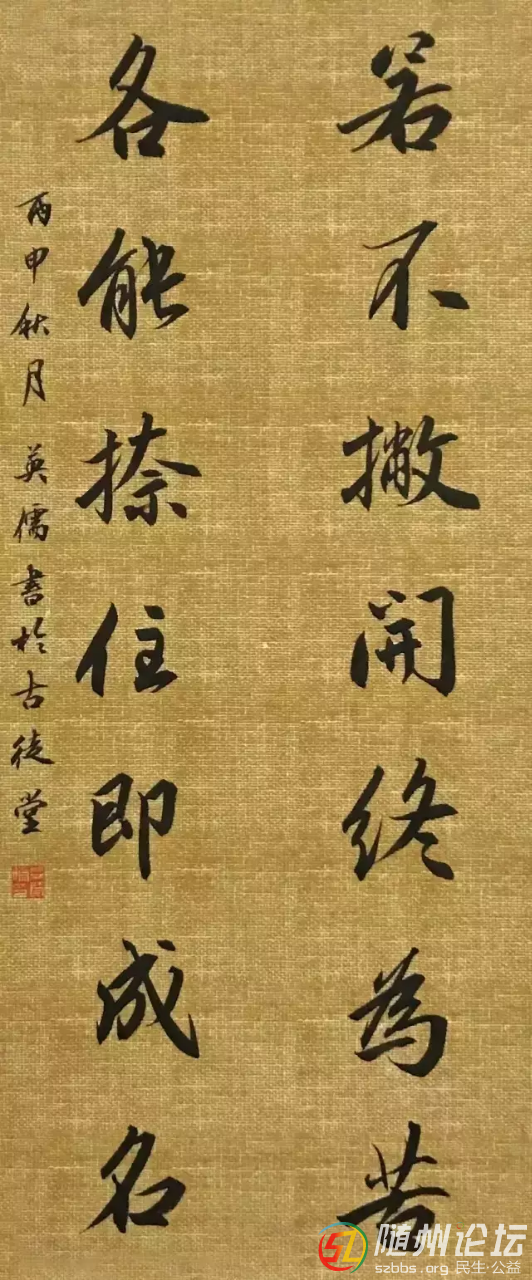 若不撇開終為苦
各能捺住即成名
丙申秋月 英儒書於古徒堂
随州论坛
szbbs.org 民生·公益